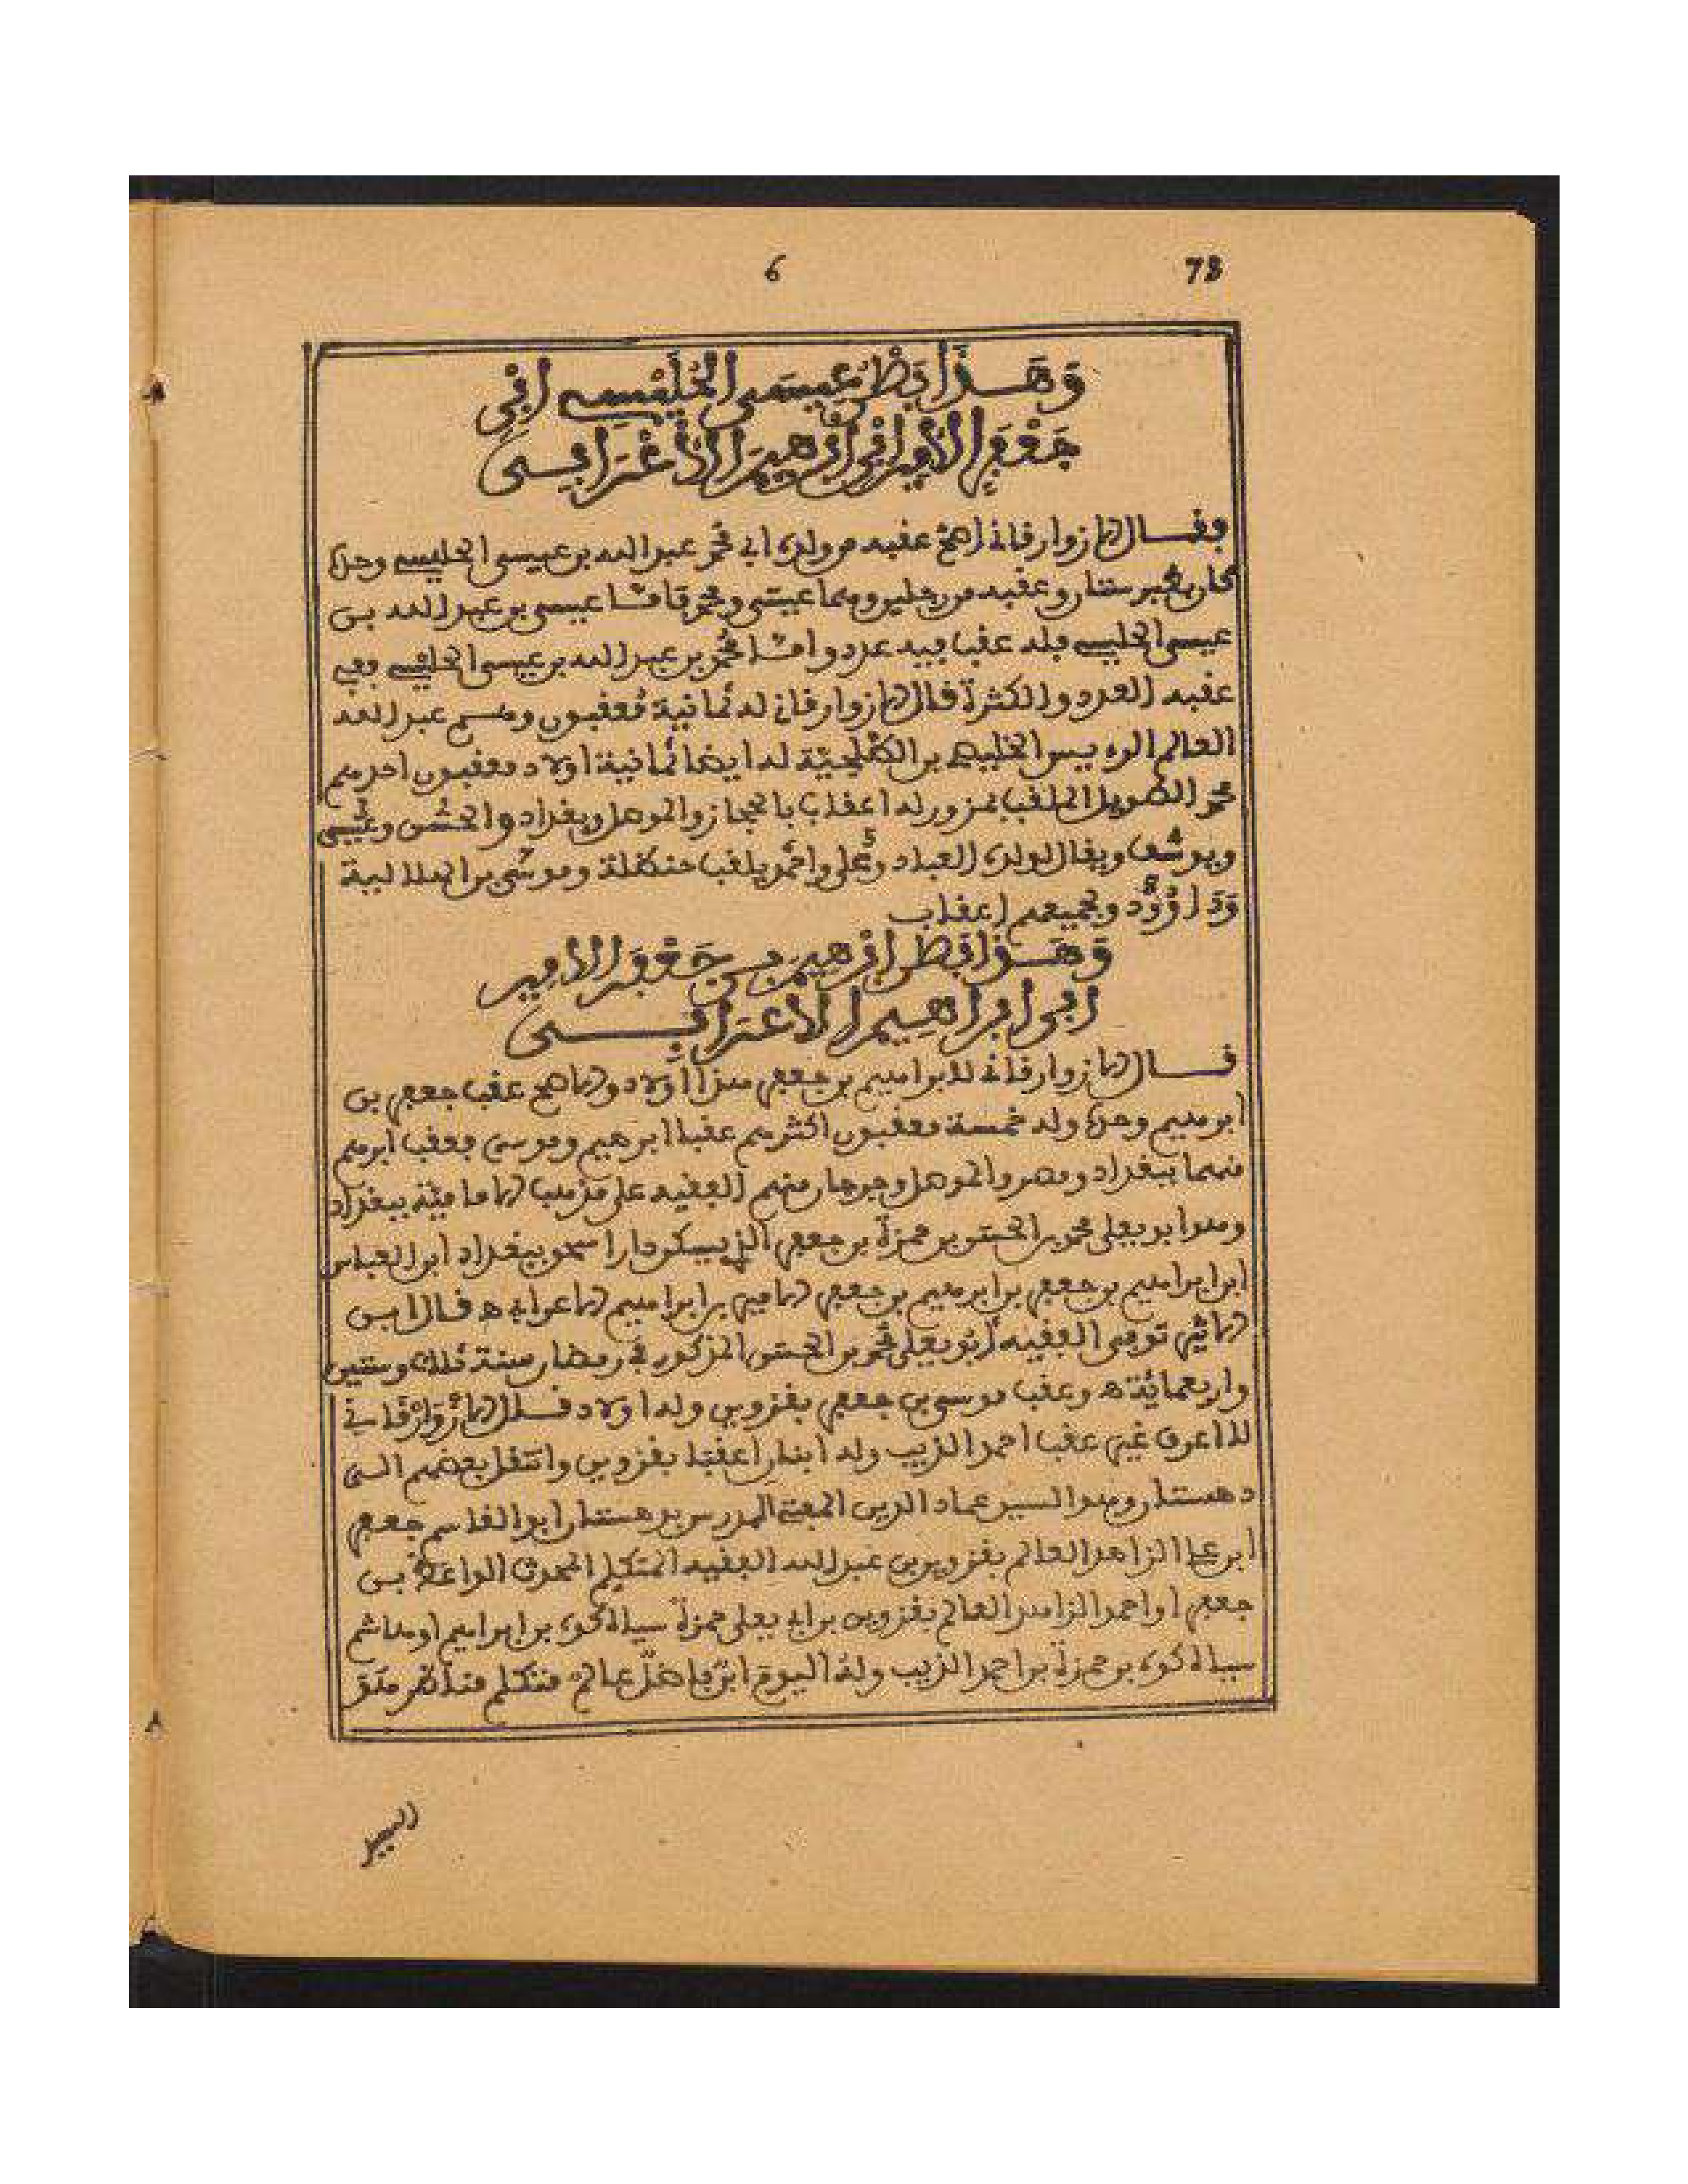 73
6
وَهَذَا فَصْلُ عِيسَى الخُلَيْصِي ابْنِ
جَعْفَرٍ الأَمِيرِ ابْنِ إِبْرَهِيمَ الأَعْرَابِي
وقال الازوارقاني اصح عقبه من ولده ابي محمد عبد الله بن عيسى الخليصي وحده
كان بغبرستان وعقبه من رجلين وهما عيسى ومحمد فاما عيسى بن عبد الله بن
عيسى الخليصي فله عقب فيه عدد واما محمد بن عبد الله بن عيسى الخليصي ففي
عقبه العدد والكثرة قال الازوارقاني له ثمانية معقبون وهم عبد الله
العالم الرءيس الخليصي بن الكلحية له ايضا ثمانية اولاد معقبون احدهم
محمد الطويل الملقب بمزور له اعقاب بالحجاز والموصل وبغداد والحسن وعيسى
ويوسف ويقال لولده العباد وعلي واحمد يلقب حنكلة وموسى بن الطالبية
وَدَاوُود ولجميعهم اعقاب
وَهَذَا فَصْلُ إِبْرَهِيمَ بن جَعْفَرَ الأمير
ابن ابراهيم الأعرابي
قال الازوارقاني لابراهيم بن جعفر هذا اولاد والاصح عقب جعفر بن
ابرهيم وحده وله خمسة معقبون اكثرهم عقبا ابرهيم وموسى فعقب ابرهيم
منهما ببغداد ومصر والموصل وجرجان منهم الفقيه على مذهب الامامية ببغداد
وهو ابو يعلى محمد بن الحسن بن حمزة بن جعفر الذي سكن دار اسحو ببغداد ابن العباس
ابن ابراهيم بن جعفر بن ابرهيم بن جعفر الامير بن ابراهيم الاعرابي ه قال ابن
الاثير توفي الفقيه أبو يعلى محمد بن الحسن المذكور في رمضان سنة ثلاث وستين
واربعمائة ه وعقب موسى بن جعفر بقزوين وله اولاد قال الازوَارْقاني
لا اعرف غير عقب احمد الزبيب وله ابنان اعقبا بقزوين وانتقل بعضهم الى
دهستان وهو السيد عماد الدين المفتي المدرس بدهستان ابو القاسم جعفر
ابن علي الزاهد العالم بقزوين بن عبد الله الفقيه المتكلم المحدث الواعظ بن
جعفر او احمد الزاهد العالم بقزوين بن ابي يعلى حمزة سيالاكوء بن ابراهيم او هاشم
سيالاكوء بن حمزة بن احمد الزبيب وله اليوم ابن فاضل عالم متكلم مناظر مدق
السيد